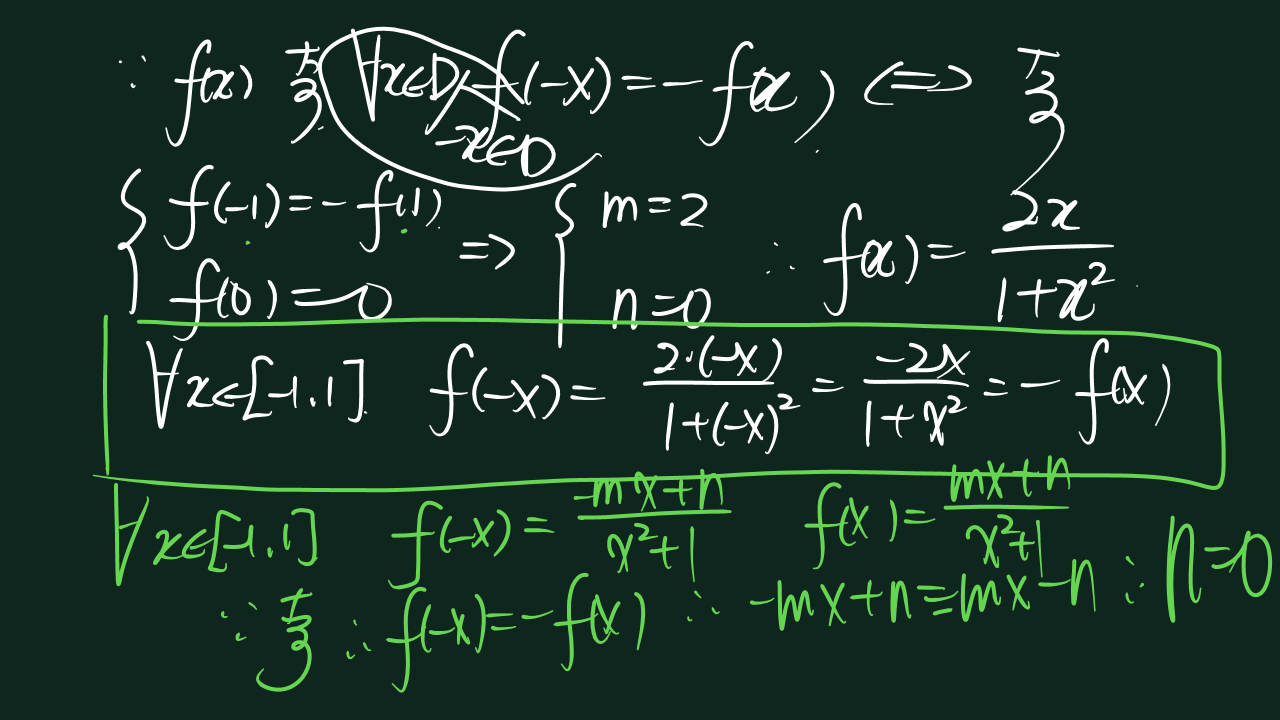 ∵ f(x) 奇 ∀x∈D, f(-x)=-f(x) ⇔ 奇
-x∈D
{ f(-1)=-f(1) ⇒ { m=2
f(0)=0 n=0 ∴ f(x)=2x/(1+x²)
∀x∈[-1,1] f(-x)=2·(-x)/(1+(-x)²)=-2x/(1+x²)=-f(x)
∀x∈[-1,1] f(-x)=(-mx+n)/(x²+1) f(x)=(mx+n)/(x²+1)
∵ 奇 ∴ f(-x)=-f(x) ∴ -mx+n≡mx-n ∴ n=0